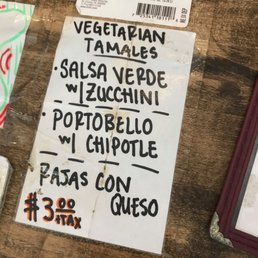 VEGETARIAN
TAMALES
· SALSA VERDE
w/ ZUCCHINI
· PORTOBELLO
w/ CHIPOTLE
RAJAS CON
QUESO
$3.00
+TAX